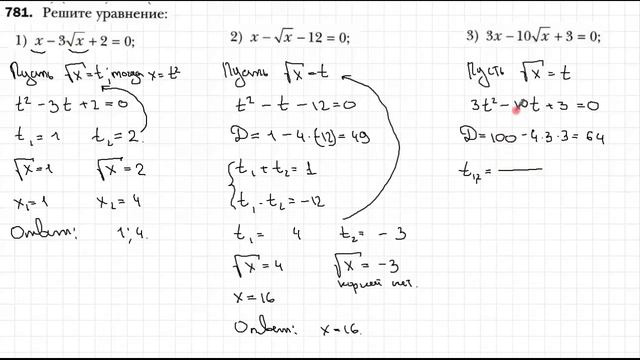 781. Решите уравнение:
1) x − 3√x + 2 = 0;
Пусть √x = t; тогда x = t²
t² − 3t + 2 = 0
t₁ = 1 t₂ = 2
√x = 1 √x = 2
x₁ = 1 x₂ = 4
Ответ: 1; 4.
2) x − √x − 12 = 0;
Пусть √x = t
t² − t − 12 = 0
D = 1 − 4·(12) = 49
t₁ + t₂ = 1
t₁ · t₂ = −12
t₁ = 4 t₂ = −3
√x = 4 √x = −3
корней нет.
x = 16
Ответ: x = 16.
3) 3x − 10√x + 3 = 0;
Пусть √x = t
3t² − 10t + 3 = 0
D = 100 − 4·3·3 = 64
t₁,₂ =